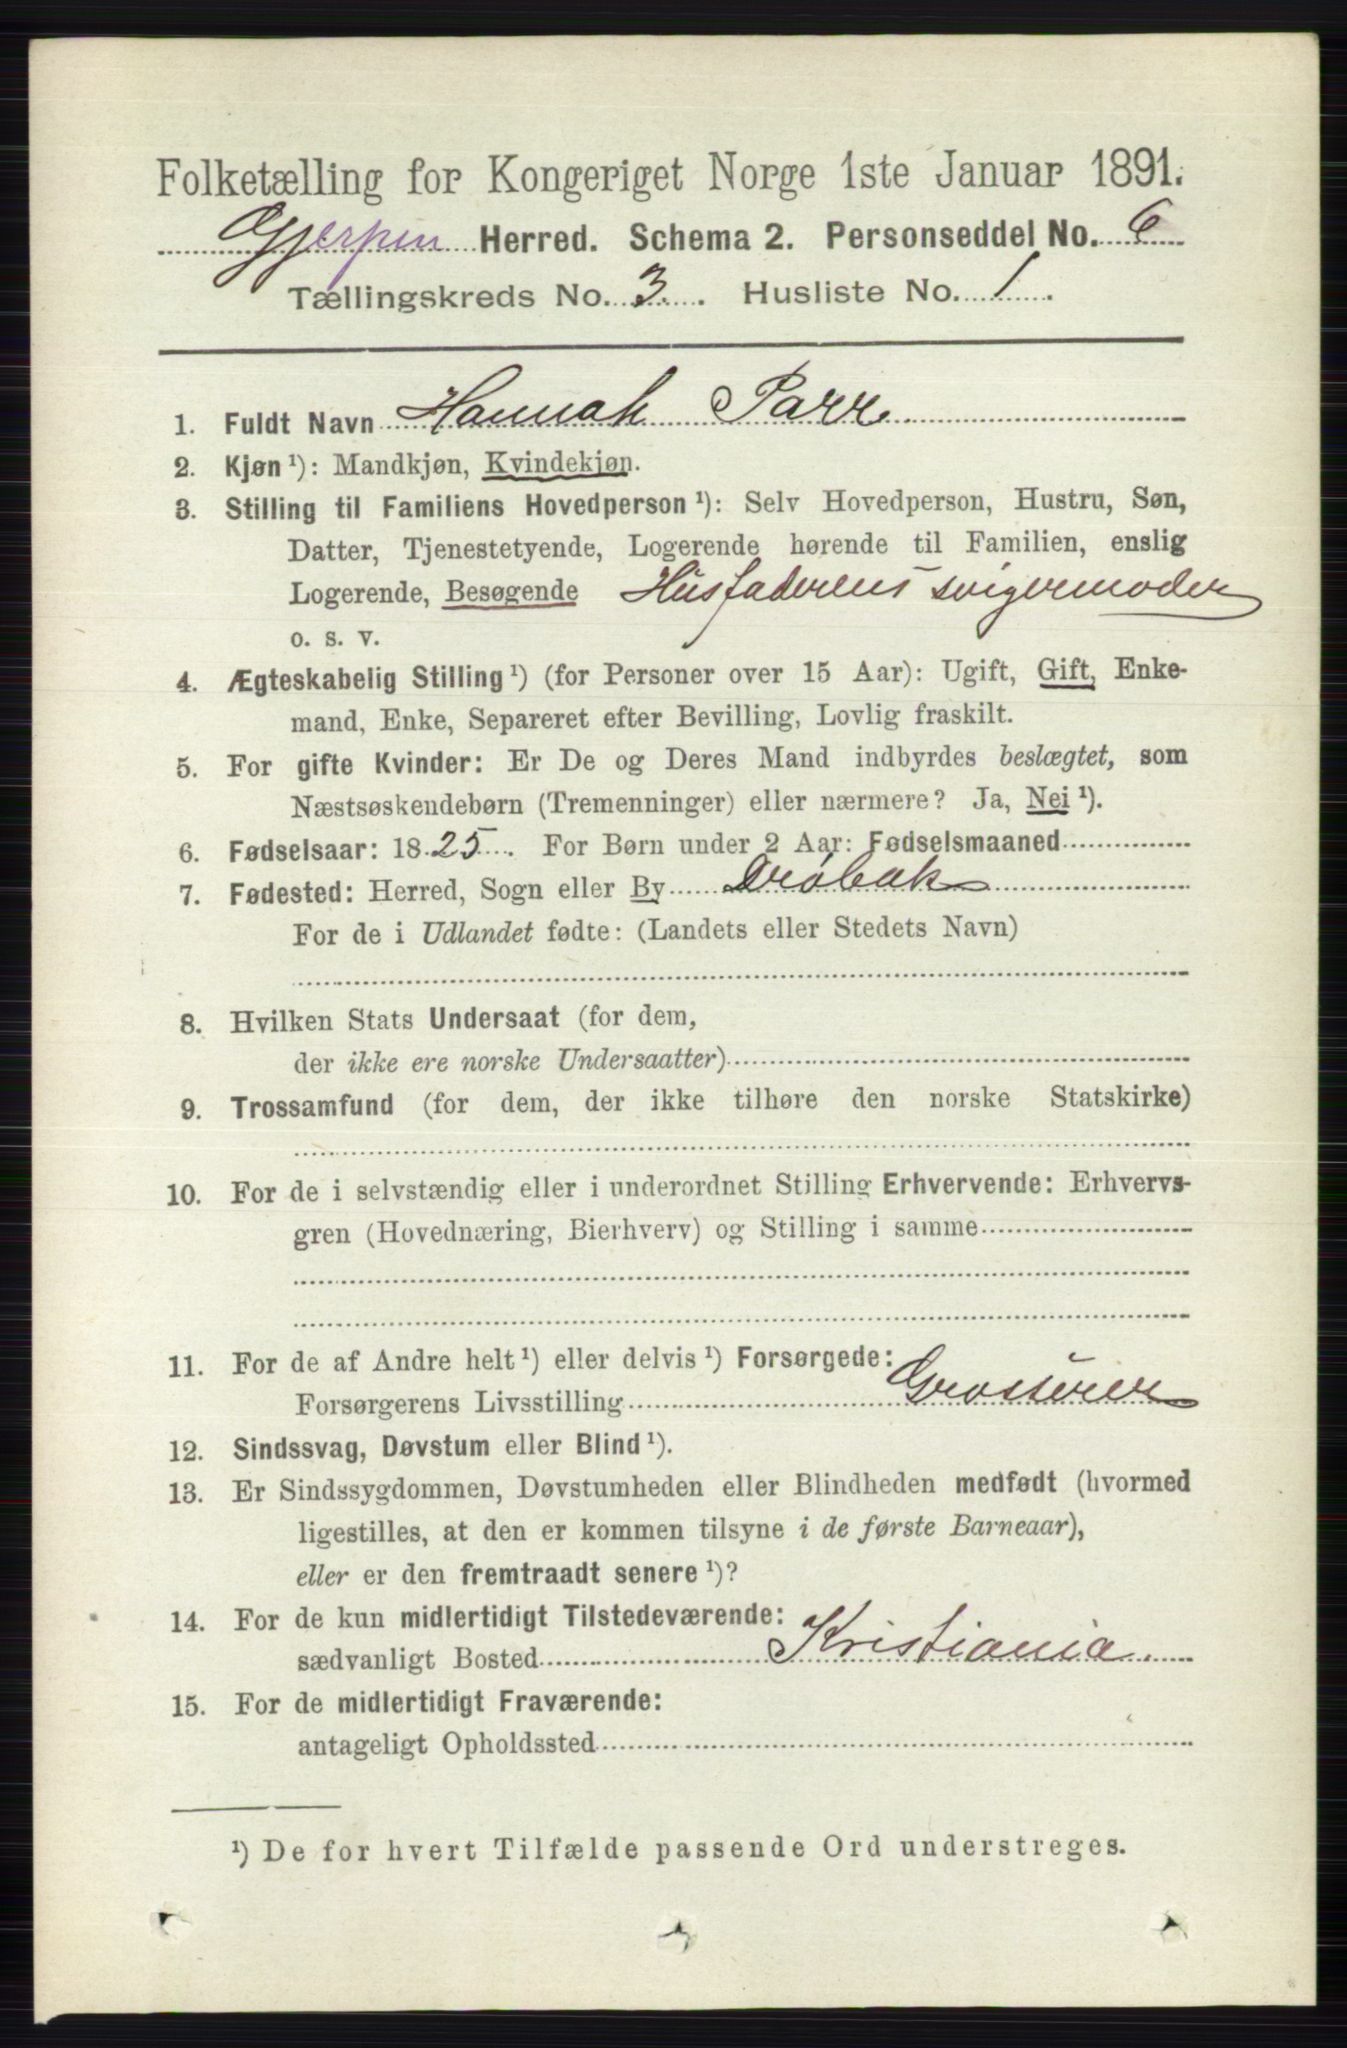 Folketælling for Kongeriget Norge 1ste Januar 1891.
Gjerpen Herred. Schema 2. Personseddel No. 6
Tællingskreds No. 3. Husliste No. 1.
1. Fuldt Navn Hannah Parr
2. Kjøn ¹): Mandkjøn, Kvindekjøn.
3. Stilling til Familiens Hovedperson ¹): Selv Hovedperson, Hustru, Søn,
Datter, Tjenestetyende, Logerende hørende til Familien, enslig
Logerende, Besøgende Husfaderens svigermoder
o. s. v.
4. Ægteskabelig Stilling ¹) (for Personer over 15 Aar): Ugift, Gift, Enke-
mand, Enke, Separeret efter Bevilling, Lovlig fraskilt.
5. For gifte Kvinder: Er De og Deres Mand indbyrdes beslægtet, som
Næstsøskendebørn (Tremenninger) eller nærmere? Ja, Nei ¹).
6. Fødselsaar: 1825. For Børn under 2 Aar: Fødselsmaaned
7. Fødested: Herred, Sogn eller By Drøbak
For de i Udlandet fødte: (Landets eller Stedets Navn)
8. Hvilken Stats Undersaat (for dem,
der ikke ere norske Undersaatter)
9. Trossamfund (for dem, der ikke tilhøre den norske Statskirke)
10. For de i selvstændig eller i underordnet Stilling Erhvervende: Erhvervs-
gren (Hovednæring, Bierhverv) og Stilling i samme
11. For de af Andre helt ¹) eller delvis ¹) Forsørgede:
Forsørgerens Livsstilling Grosserer
12. Sindssvag, Døvstum eller Blind ¹).
13. Er Sindssygdommen, Døvstumheden eller Blindheden medfødt (hvormed
ligestilles, at den er kommen tilsyne i de første Barneaar),
eller er den fremtraadt senere ¹)?
14. For de kun midlertidigt Tilstedeværende:
sædvanligt Bosted Kristiania.
15. For de midlertidigt Fraværende:
antageligt Opholdssted
¹) De for hvert Tilfælde passende Ord understreges.